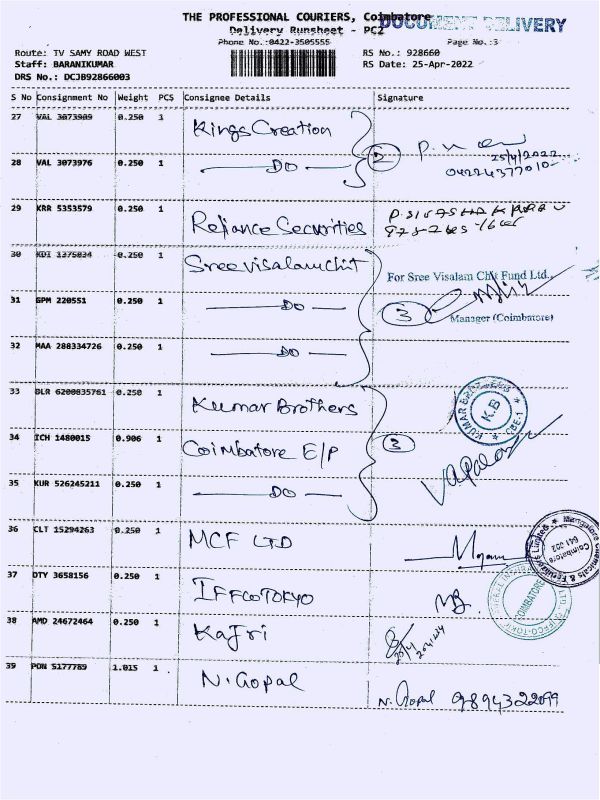 THE PROFESSIONAL COURIERS, Coimbatore
DOCUMENT DELIVERY
Delivery Runsheet - PC2
Phone No.:0422-3505555 Page No.:3
Route: TV SAMY ROAD WEST RS No.: 928660
Staff: BARANIKUMAR RS Date: 25-Apr-2022
DRS No.: DCJB92866003
S No Consignment No Weight PCS Consignee Details Signature
27 VAL 3073909 0.250 1 Kings Creation
25/4/2022
28 VAL 3073976 0.250 1 DO 2
29 KRR 5353579 0.250 1 Reliance Securities
30 KDI 1375034 0.250 1 Sree Visalam Chit For Sree Visalam Chit Fund Ltd.,
31 GPM 220551 0.250 1 DO 3
Manager (Coimbatore)
32 MAA 288334726 0.250 1 DO
33 BLR 6200835761 0.250 1 Kumar Brothers
KUMAR BROTHERS K.B CBE-1
34 ICH 1480015 0.906 1 Coimbatore E/P 3
35 KUR 526245211 0.250 1 DO
36 CLT 15294263 0.250 1 MCF LTD
Mangalore Chemicals & Fertilizers Limited Coimbatore 641 002
37 DTY 3658156 0.250 1 IFFCOTOKYO
COIMBATORE
38 AMD 24672464 0.250 1 Kajri
39 PON 5177789 1.015 1 N. Gopal
N. Gopal 9894322099